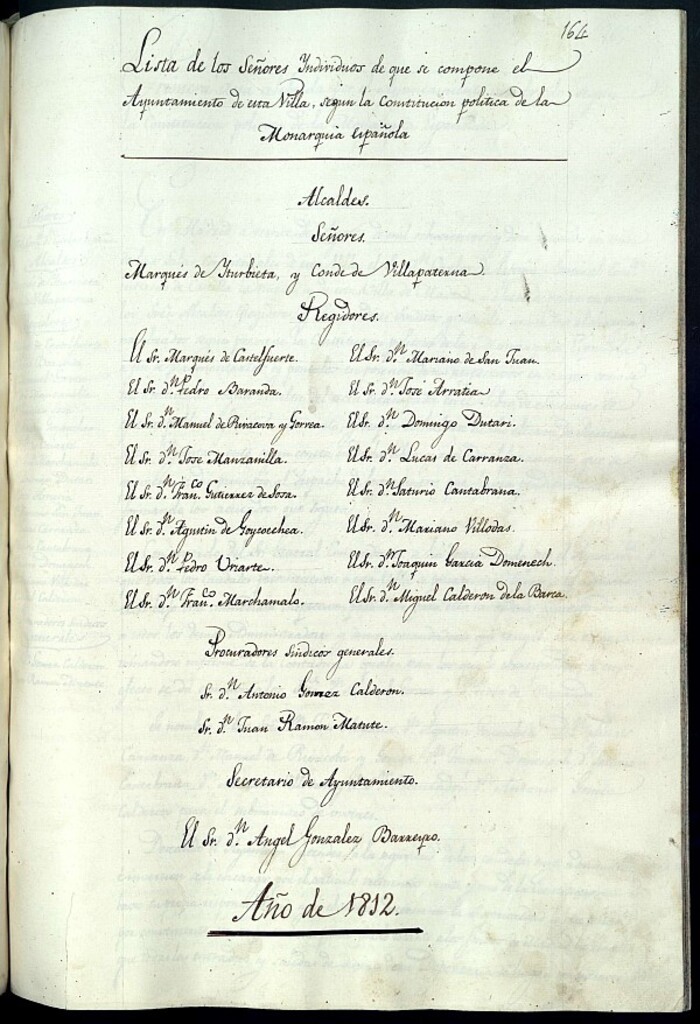 164
Lista de los Señores Yndividuos de que se compone el
Ayuntamiento de esta Villa, segun la Constitucion politica de la
Monarquia Española
Alcaldes.
Señores.
Marqués de Yturbieta, y Conde de Villapaterna
Regidores.
El Sr. Marqués de Castelfuerte.
El Sr. d.n Pedro Baranda.
El Sr. d.n Manuel de Rivacova y Gorrea.
El Sr. d.n Jose Manzanilla.
El Sr. d.n Fran.co Gutierrez de Sosa.
El Sr. d.n Agustin de Goycoechea.
El Sr. d.n Pedro Uriarte.
El Sr. d.n Fran.co Marchamalo.
El Sr. d.n Mariano de San Juan.
El Sr. d.n José Arratia
El Sr. d.n Domingo Dutari.
El Sr. d.n Lucas de Carranza.
El Sr. d.n Saturio Cantabrana.
El Sr. d.n Mariano Villodas.
El Sr. d.n Joaquin Garcia Domenech.
El Sr. d.n Miguel Calderon de la Barca.
Procuradores Sindicos generales.
Sr. d.n Antonio Gomez Calderon.
Sr. d.n Juan Ramon Matute.
Secretario de Ayuntamiento.
El Sr. d.n Angel Gonzalez Barreyro.
Año de 1812.